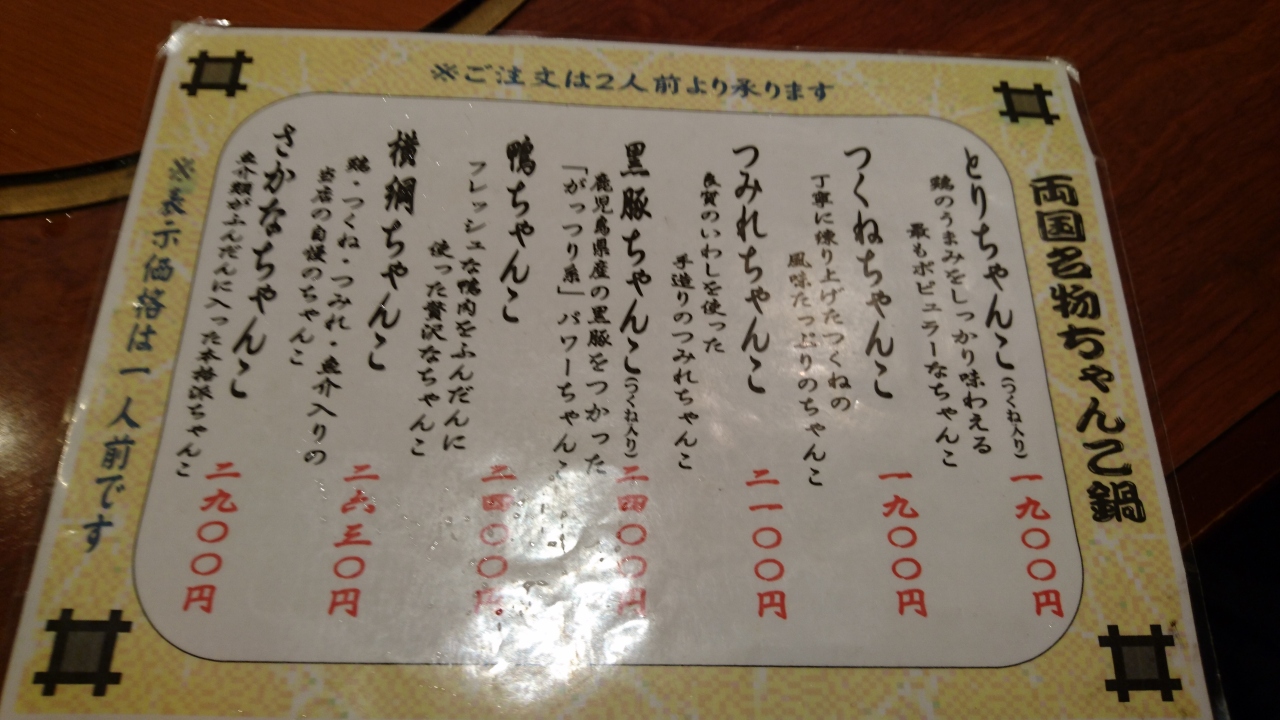 ※ご注文は2人前より承ります
両国名物ちゃんこ鍋
とりちゃんこ(つくね入り) 一九〇〇円
鶏のうまみをしっかり味わえる
最もポピュラーなちゃんこ
つくねちゃんこ 一九〇〇円
丁寧に練り上げたつくねの
風味たっぷりのちゃんこ
つみれちゃんこ 二一〇〇円
良質のいわしを使った
手造りのつみれちゃんこ
黒豚ちゃんこ(つくね入り) 二四〇〇円
鹿児島県産の黒豚をつかった
「がっつり系」パワーちゃんこ
鴨ちゃんこ 二四〇〇円
フレッシュな鴨肉をふんだんに
使った贅沢なちゃんこ
横綱ちゃんこ 二六三〇円
鶏・つくね・つみれ・魚介入りの
当店の自慢のちゃんこ
さかなちゃんこ 二九〇〇円
魚介類がふんだんに入った本格派ちゃんこ
※表示価格は一人前です